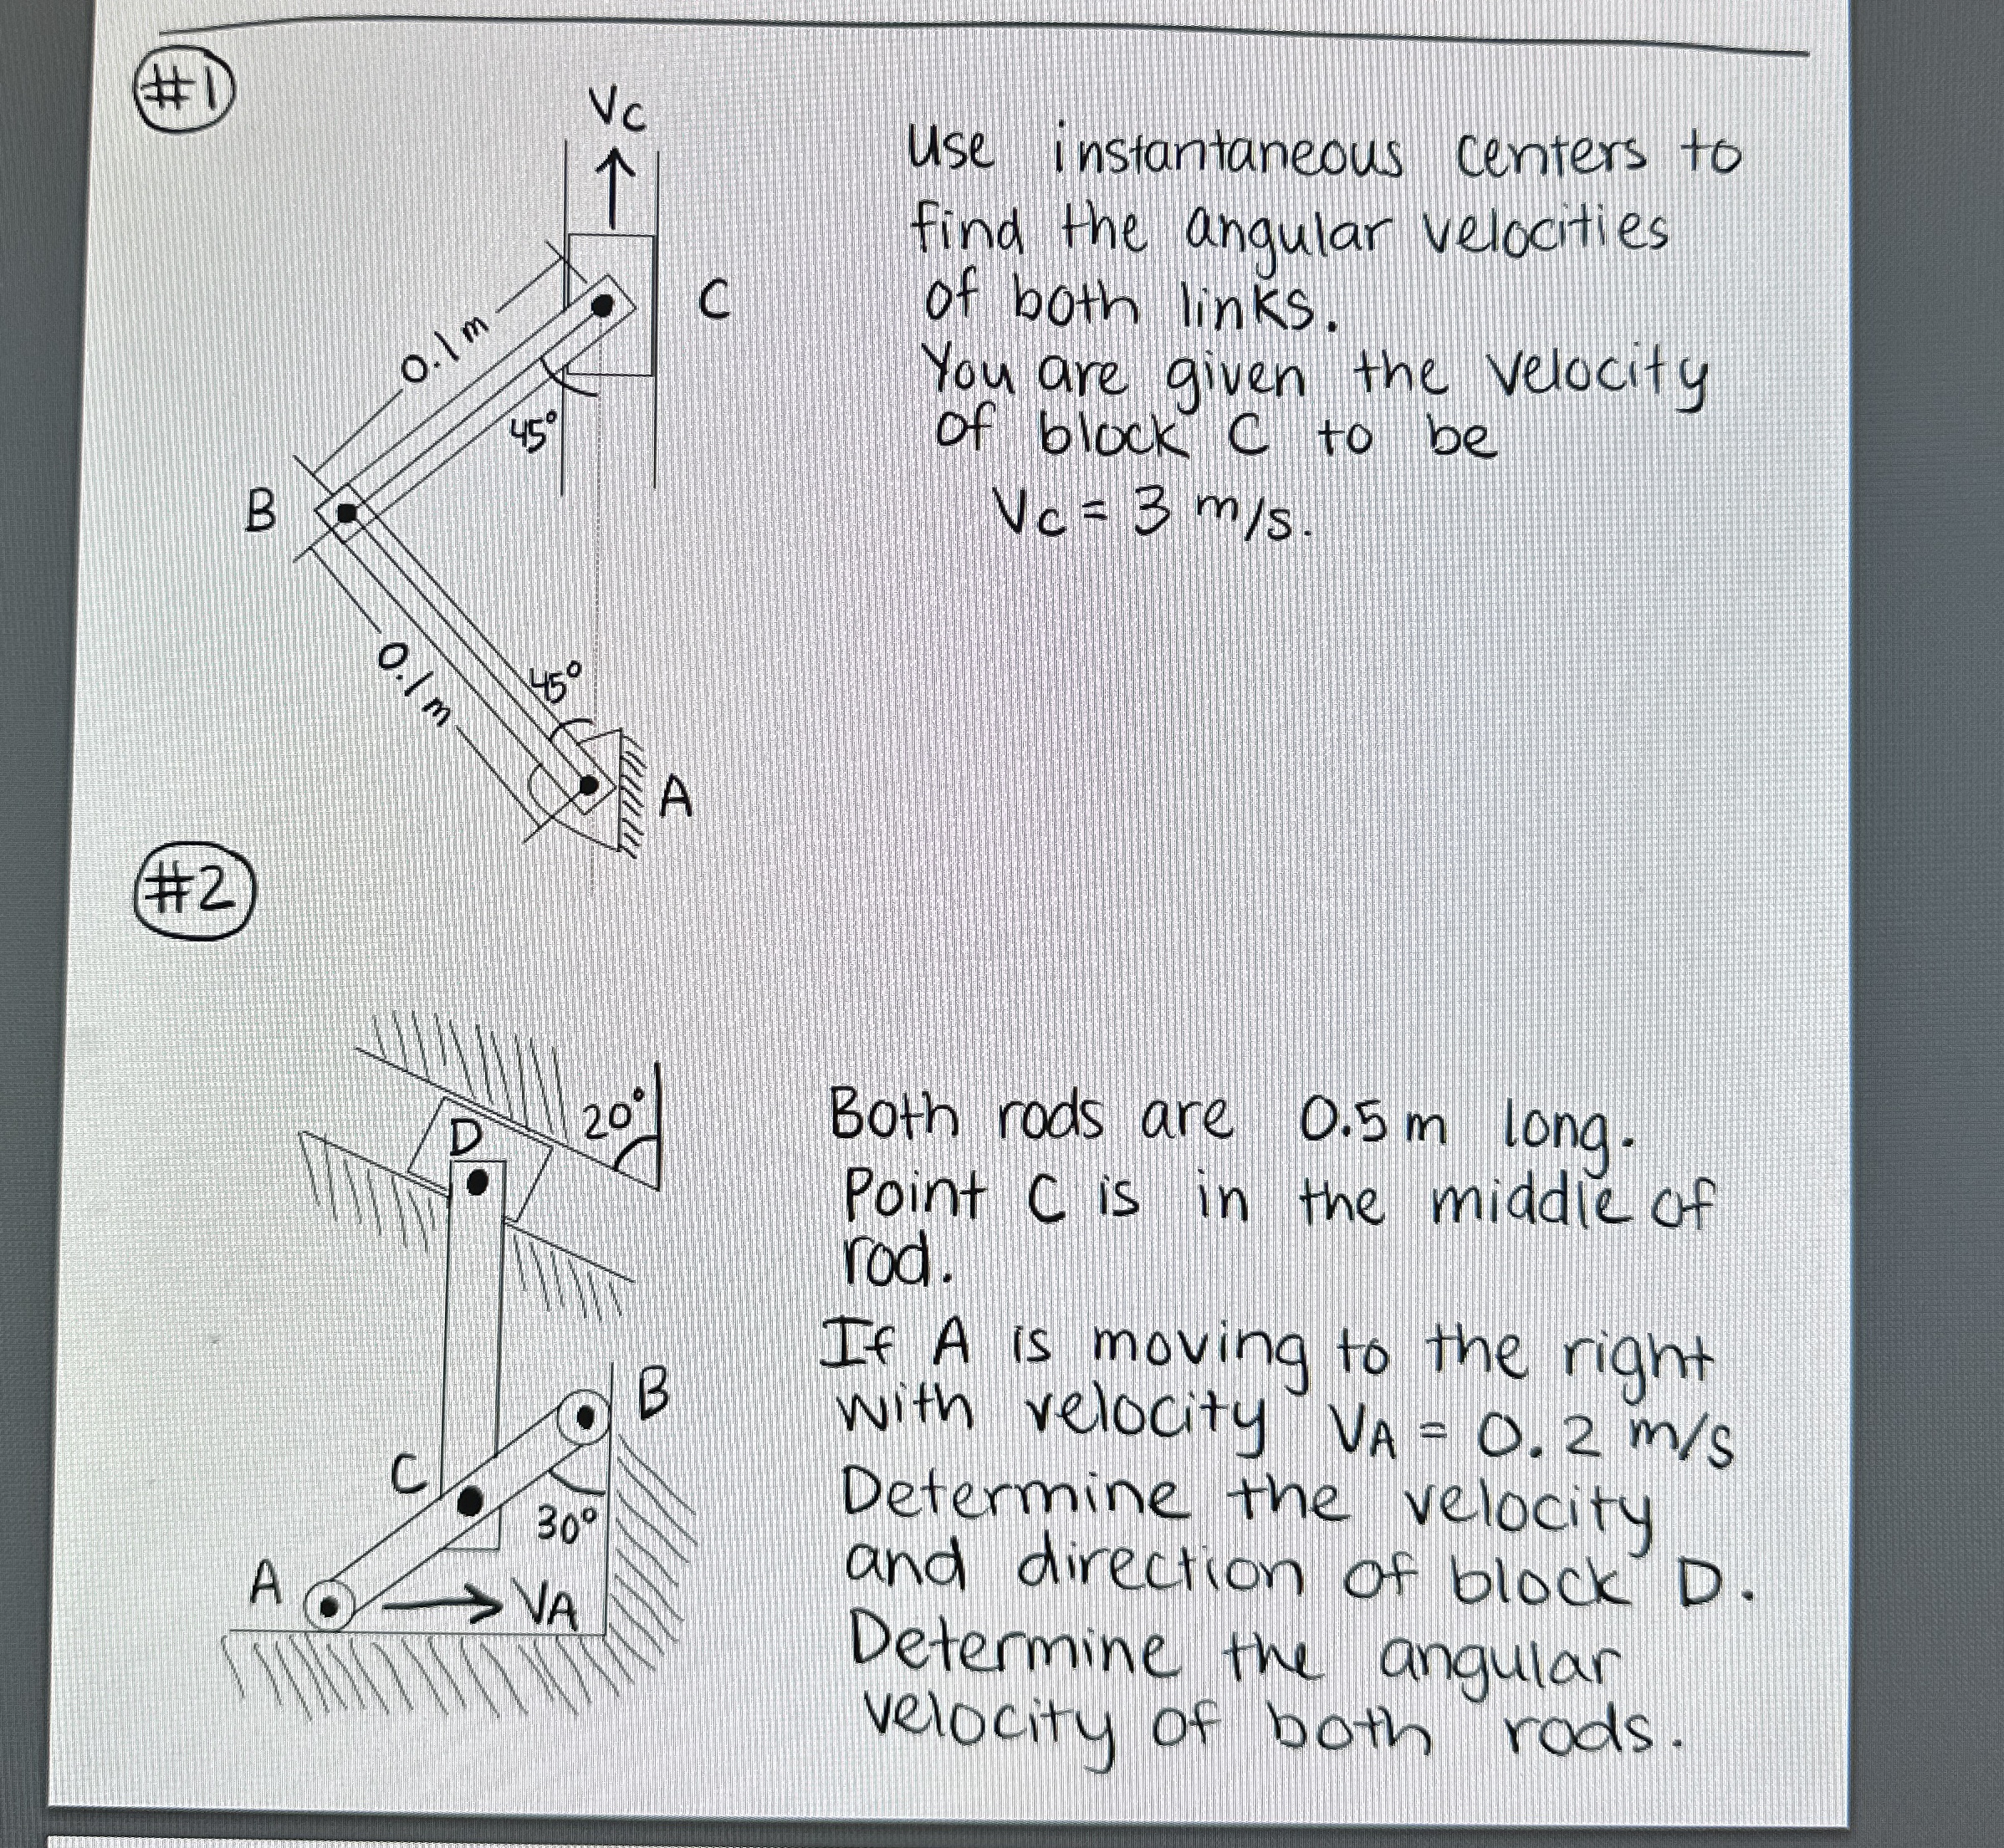 #1
Vc
Use instantaneous centers to
find the angular velocities
of both links.
You are given the velocity
of block C to be
Vc = 3 m/s.
C
0.1 m
45°
B
0.1 m
45°
A
#2
20°
D
Both rods are 0.5 m long.
Point C is in the middle of
rod.
If A is moving to the right
with velocity VA = 0.2 m/s
Determine the velocity
and direction of block D.
Determine the angular
velocity of both rods.
B
C
30°
A
VA